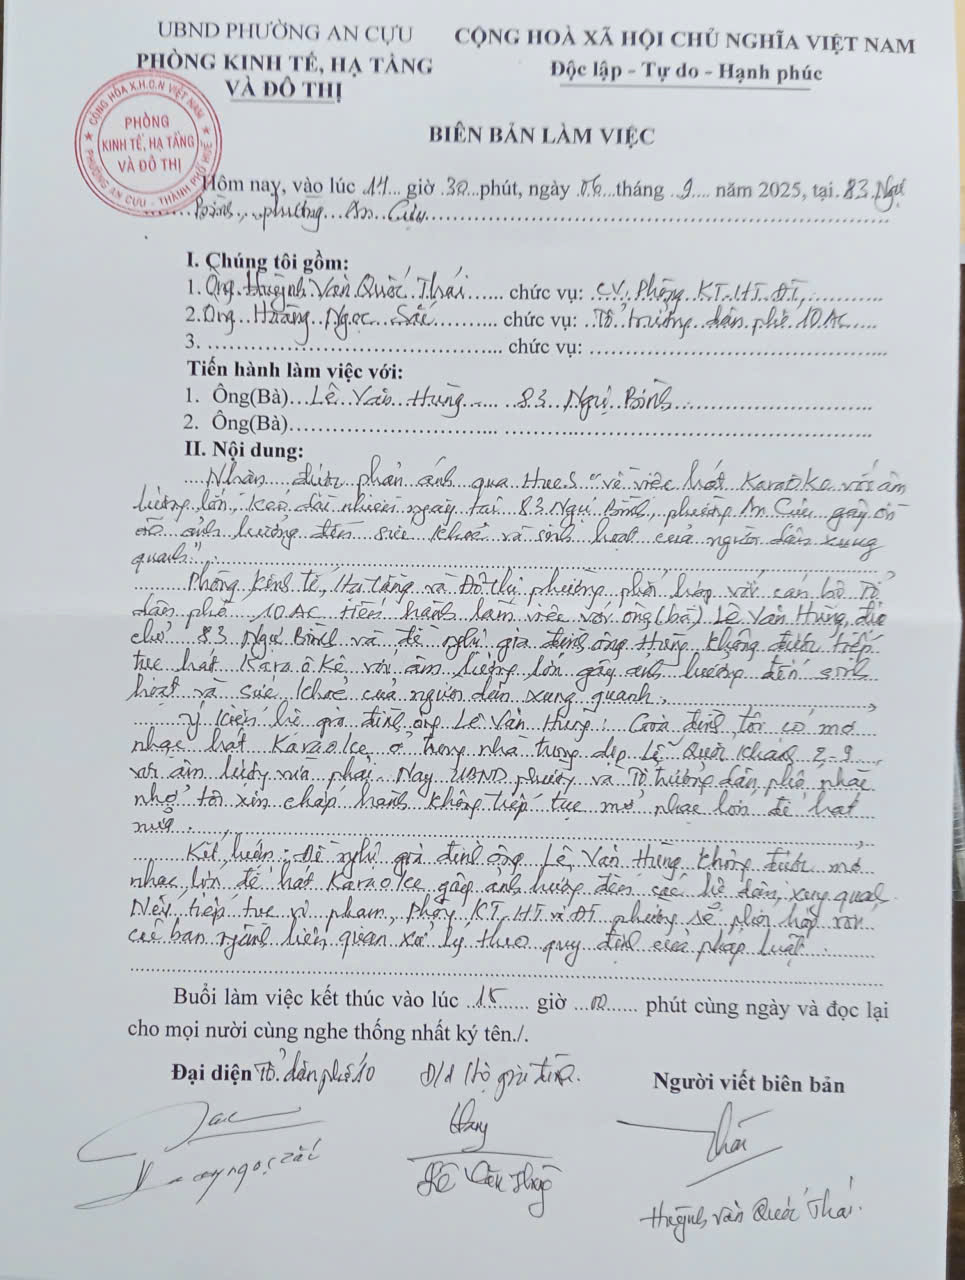 UBND PHƯỜNG AN CỰU
PHÒNG KINH TẾ, HẠ TẦNG
VÀ ĐÔ THỊ
CỘNG HOÀ XÃ HỘI CHỦ NGHĨA VIỆT NAM
Độc lập - Tự do - Hạnh phúc
CỘNG HÒA X.H.C.N VIỆT NAM
PHÒNG
KINH TẾ, HẠ TẦNG
VÀ ĐÔ THỊ
PHƯỜNG AN CỰU - THÀNH PHỐ HUẾ
BIÊN BẢN LÀM VIỆC
Hôm nay, vào lúc 14 giờ 30 phút, ngày 06 tháng 9 năm 2025, tại 83 Ngự
Bình, phường An Cựu
I. Chúng tôi gồm:
1. Ông Huỳnh Văn Quốc Thái chức vụ: CV Phòng KT, HT, ĐT,
2. Ông Hoàng Ngọc Sắc chức vụ: Tổ trưởng dân phố 10 AC
3. chức vụ:
Tiến hành làm việc với:
1. Ông(Bà) Lê Văn Hùng 83 Ngự Bình
2. Ông(Bà)
II. Nội dung:
Nhận được phản ánh qua Hue.S "về việc hát Karaoke với âm
lượng lớn, kéo dài nhiều ngày tại 83 Ngự Bình, phường An Cựu gây ồn
ào ảnh hưởng đến sức khoẻ và sinh hoạt của người dân xung
quanh".
Phòng Kinh tế, Hạ tầng và Đô thị phường phối hợp với cán bộ Tổ
dân phố 10 AC tiến hành làm việc với ông (bà) Lê Văn Hùng, địa
chỉ 83 Ngự Bình và đề nghị gia đình ông Hùng không được tiếp
tục hát Karaôkê với âm lượng lớn gây ảnh hưởng đến sinh
hoạt và sức khoẻ của người dân xung quanh.
Ý kiến hộ gia đình ông Lê Văn Hùng: Gia đình tôi có mở
nhạc hát Karaoke ở trong nhà trong dịp Lễ Quốc khánh 2-9
với âm lượng vừa phải. Nay UBND phường và Tổ trưởng dân phố nhắc
nhở tôi xin chấp hành không tiếp tục mở nhạc lớn để hát
nữa.
Kết luận: Đề nghị gia đình ông Lê Văn Hùng không được mở
nhạc lớn để hát Karaoke gây ảnh hưởng đến các hộ dân xung quanh.
Nếu tiếp tục vi phạm, Phòng KT, HT và ĐT phường sẽ phối hợp với
các ban ngành liên quan xử lý theo quy định của pháp luật.
Buổi làm việc kết thúc vào lúc 15 giờ 00 phút cùng ngày và đọc lại
cho mọi nười cùng nghe thống nhất ký tên./.
Đại diện Tổ dân phố 10
Đ/d Hộ gia đình.
Người viết biên bản
Thái
Lê Văn
Huỳnh Văn Quốc Thái.